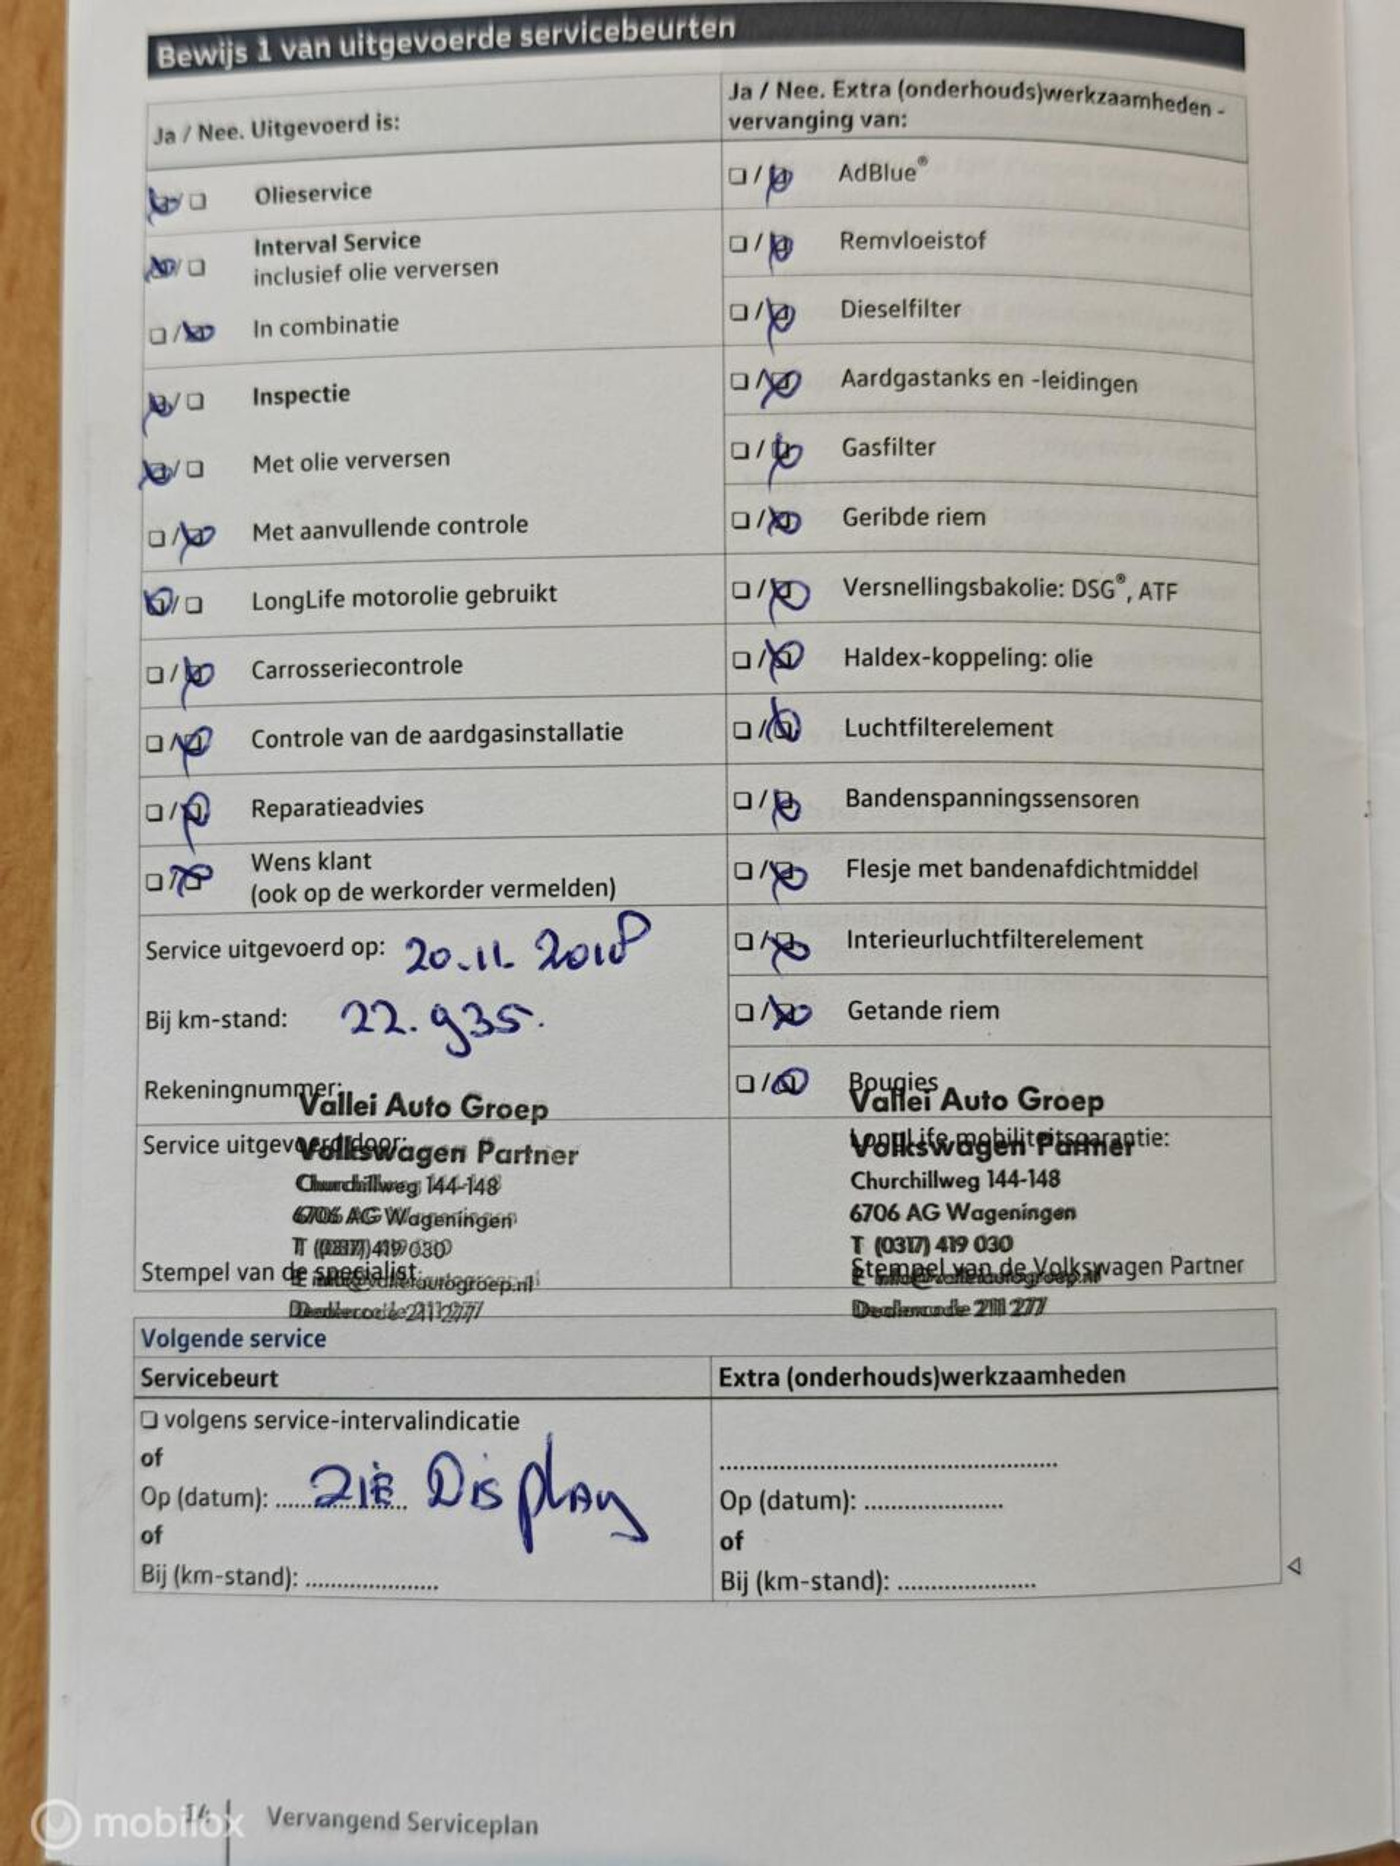 Bewijs 1 van uitgevoerde servicebeurten
Ja / Nee. Uitgevoerd is:
Olieservice
Interval Service
inclusief olie verversen
In combinatie
Inspectie
Met olie verversen
Met aanvullende controle
LongLife motorolie gebruikt
Carrosseriecontrole
Controle van de aardgasinstallatie
Reparatieadvies
Wens klant
(ook op de werkorder vermelden)
Service uitgevoerd op: 20.11.2018
Bij km-stand: 22.935.
Rekeningnummer:
Vallei Auto Groep
Service uitgevoerd door:
Volkswagen Partner
Churchillweg 144-148
6706 AG Wageningen
T (0317) 419 030
Stempel van de specialist
E info@valleiautogroep.nl
Dealercode 211 277
Ja / Nee. Extra (onderhouds)werkzaamheden -
vervanging van:
AdBlue®
Remvloeistof
Dieselfilter
Aardgastanks en -leidingen
Gasfilter
Geribde riem
Versnellingsbakolie: DSG®, ATF
Haldex-koppeling: olie
Luchtfilterelement
Bandenspanningssensoren
Flesje met bandenafdichtmiddel
Interieurluchtfilterelement
Getande riem
Bougies
Vallei Auto Groep
LongLife mobiliteitsgarantie:
Volkswagen Partner
Churchillweg 144-148
6706 AG Wageningen
T (0317) 419 030
Stempel van de Volkswagen Partner
E info@valleiautogroep.nl
Dealercode 211 277
Volgende service
Servicebeurt
volgens service-intervalindicatie
of
Op (datum): ZIE Display
of
Bij (km-stand): ......................
Extra (onderhouds)werkzaamheden
Op (datum): ......................
of
Bij (km-stand): ......................
14 Vervangend Serviceplan
mobilox